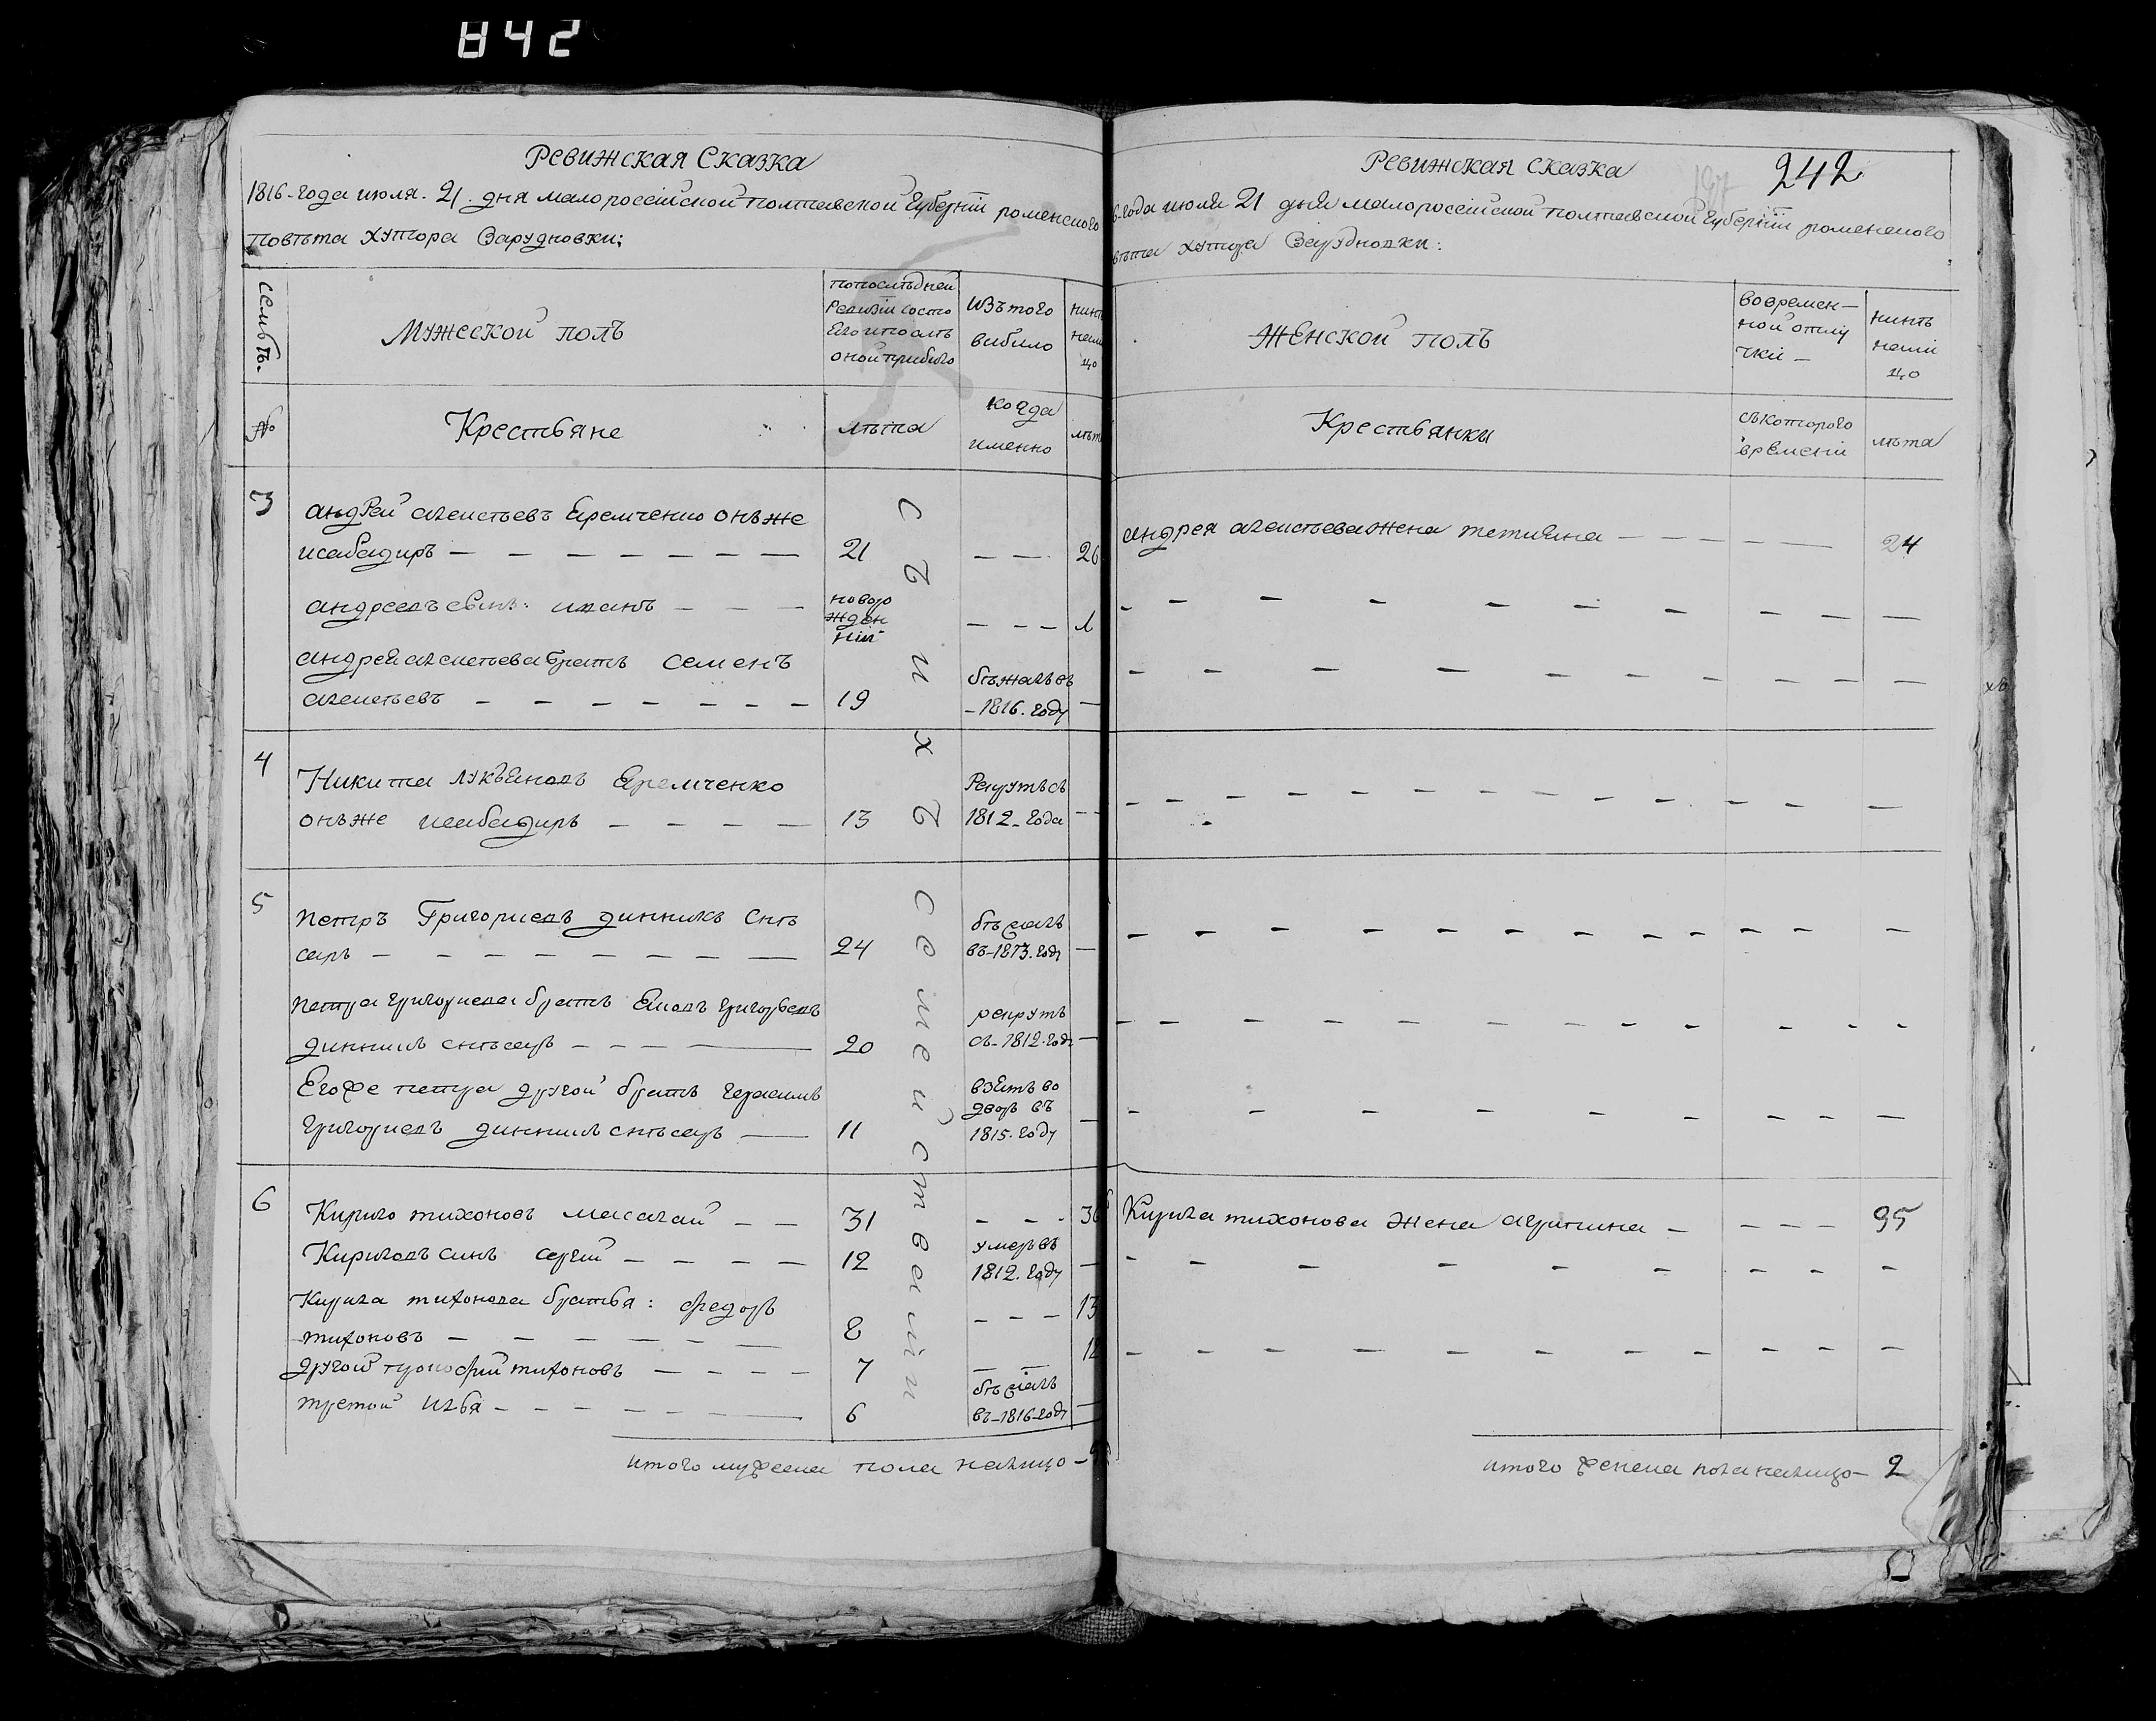 842
Ревижская Сказка
1816-года июля. 21. дня малороссійской полтавской Губерніи роменского
повѣта хутора Зарудновки;
семьѣ.
Мужеской полъ
попослѣдней
Ревизіи состо
Его ипослѣ
оной прибило
Изъ того
вибило
нинѣ
нали
цо
№
Крестьяне
лѣта
когда
именно
лѣт
3
андрей Еремченко онъже
21
26
андреевъ синъ: иванъ
новоро
жден
ній
1
андрея брать семенъ
19
бѣжалъ въ
1816. году
4
Никита лукъяновъ Еремченко
онъже
13
Рекрутъ съ
1812-года
5
петръ Григориевъ динникъ снѣ
саръ
24
бѣжалъ
въ-1813. году
петра григориева братъ григорьевъ
динникъ снѣсаръ
20
рекрутъ
съ-1812.году
Егоже петра другой братъ герасимъ
григориевъ динникъ снѣсаръ
11
взятъ во
дворъ въ
1815. году
6
Кирило тихоновъ
31
36
Кириловъ синъ сергій
12
умеръ въ
1812. году
Кирила тихонова братья: федоръ
тихоновъ
8
13
другой прокофій тихоновъ
7
12
третій илья
6
бѣжалъ
въ-1816-году
съ ихъ семействами
итого мужеска пола налицо-
Ревижская сказка
242
6-года июля 21 дня малороссійской полтавской Губерніи роменского
вѣта хутора Зарудновки:
Женской полъ
вовремен-
ной отлу
чки-
нинѣ
нали
цо
Крестьянки
съкоторого
времени
лѣта
андрея жена тетияна
24
Кирила тихонова жена агрипина
35
итого женска пола налицо- 2